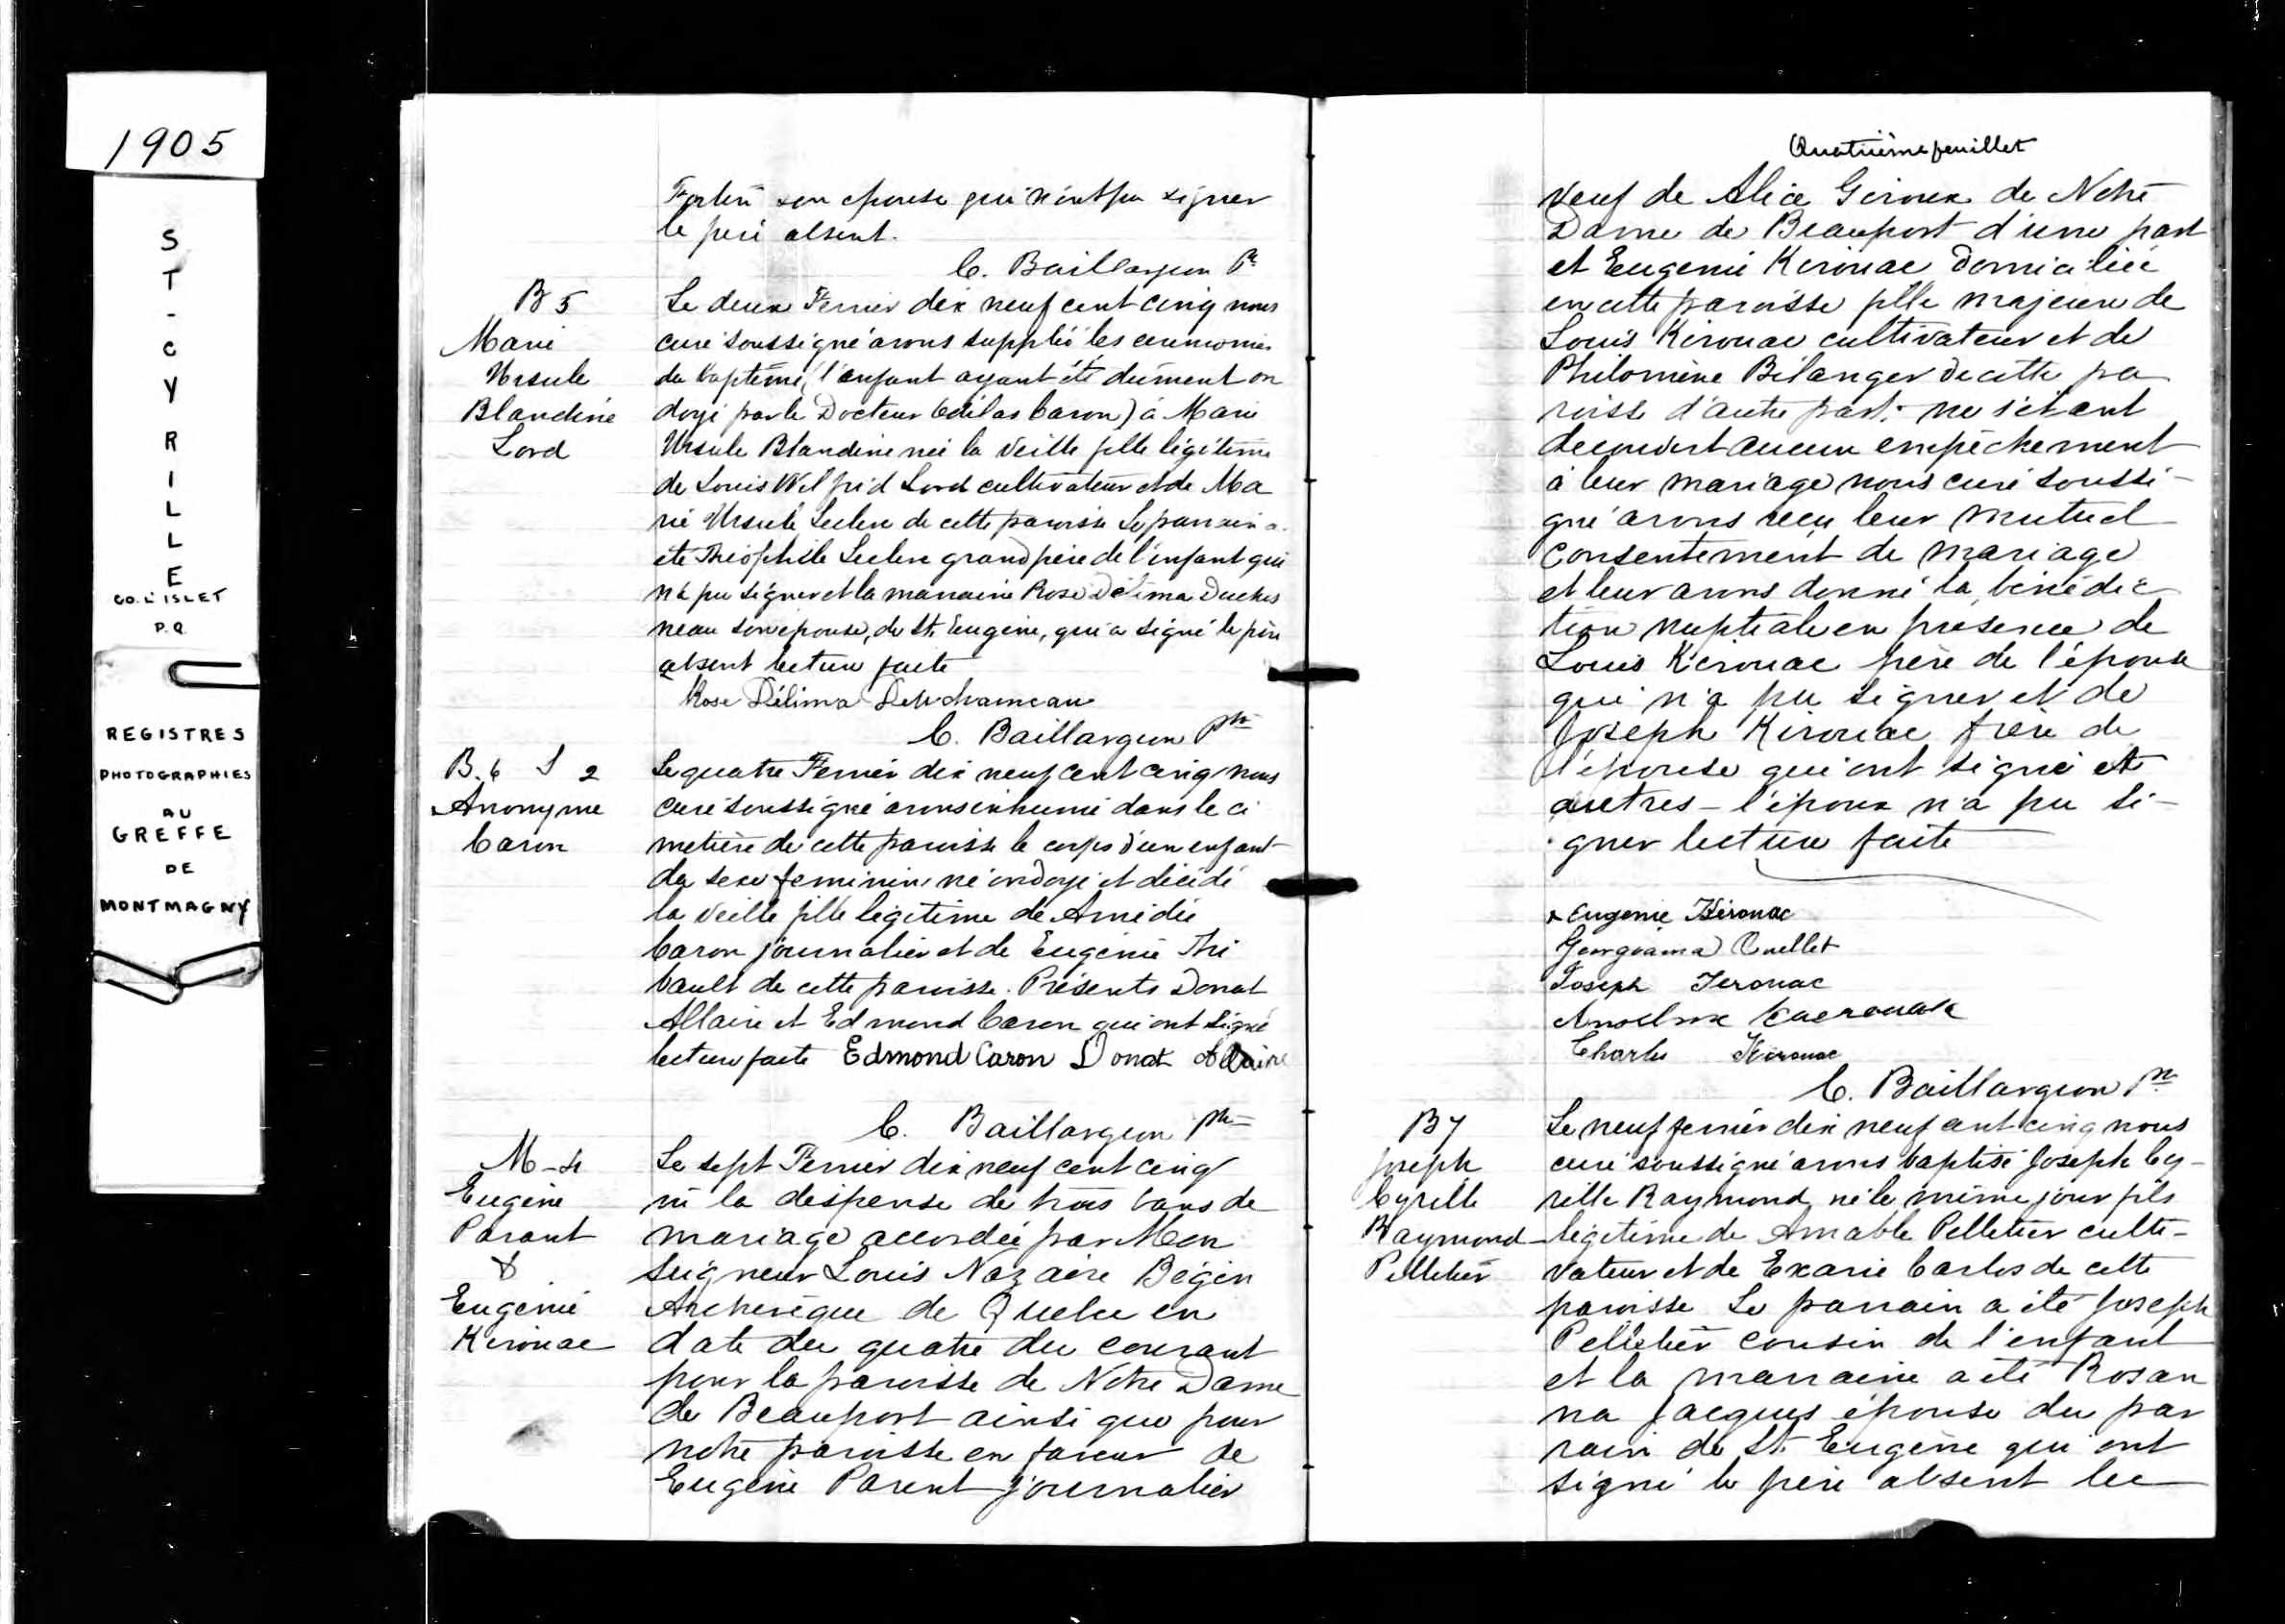 1905
S
T
-
C
Y
R
I
L
L
E
CO. L'ISLET
P.Q.
REGISTRES
PHOTOGRAPHIES
AU
GREFFE
DE
MONTMAGNY
Fortin son epouse qui n'ont pu signer
le père absent.
C. Baillargeon Ptre
B 5
Marie
Ursule
Blandine
Lord
Le deux Fevrier dix neuf cent cinq nous
curé soussigné avons suppléé les ceremonies
du baptême (l'enfant ayant été dûment on
doyé par le Docteur Caron) à Marie
Ursule Blandine née la veille fille légitime
de Louis Wilfrid Lord cultivateur et de Ma
rie Ursule Leclerc de cette paroisse Le parrain a
été Théophile Leclerc grand père de l'enfant qui
n'a pu signer et la marraine Rose Délima Duches
neau son epouse, de St. Eugène, qui a signé le père
absent lecture faite
Rose Délima Duchaineau
C. Baillargeon Ptre
B. 6 S 2
Anonyme
Caron
Le quatre Fevrier dix neuf cent cinq nous
curé soussigné avons inhumé dans le ci
metière de cette paroisse le corps d'un enfant
du sexe feminin né ondoyé et décédé
la veille fille légitime de Amédée
Caron journalier et de Eugénie Thi
bault de cette paroisse. Présents Donat
Allaire et Edmond Caron qui ont signé
lecture faite Edmond Caron Donat Allaire
C. Baillargeon Ptre
M-4
Eugène
Parant
&
Eugenie
Kirouac
Le sept Fevrier dix neuf cent cinq
vu la dispense de trois bans de
mariage accordée par Mon
seigneur Louis Nazaire Bégin
Archevêque de Quebec en
date du quatre du courant
pour la paroisse de Notre Dame
de Beauport ainsi que pour
notre paroisse en faveur de
Eugène Parent journalier
Quatrième feuillet
veuf de Alice Giroux de Notre
Dame de Beauport d'une part
et Eugenie Kirouac domiciliée
en cette paroisse fille majeure de
Louis Kirouac cultivateur et de
Philomène Bélanger de cette pa
roisse d'autre part: ne s'étant
decouvert aucun empêchement
à leur mariage nous curé soussi-
gné avons reçu leur mutuel
consentement de mariage
et leur avons donné la bénédic
tion nuptiale en presence de
Louis Kirouac père de l'épouse
qui n'a pu signer et de
Joseph Kirouac frère de
l'épouse qui ont signé et
autres - l'époux n'a pu si-
gner lecture faite
Eugenie Kérouac
Georgianna Ouellet
Joseph Kerouac
Anselme
Charles Kirouac
C. Baillargeon Ptre
B 7
Joseph
Cyrille
Raymond
Pelletier
Le neuf fevrier dix neuf cent cinq nous
curé soussigné avons baptisé Joseph Cy-
rille Raymond né le même jour fils
légitime de Amable Pelletier culti-
vateur et de Exarie Carlos de cette
paroisse Le parrain a été Joseph
Pelletier cousin de l'enfant
et la marraine a été Rosan
na Jacques épouse du par
rain de St. Eugène qui ont
signé le père absent lec